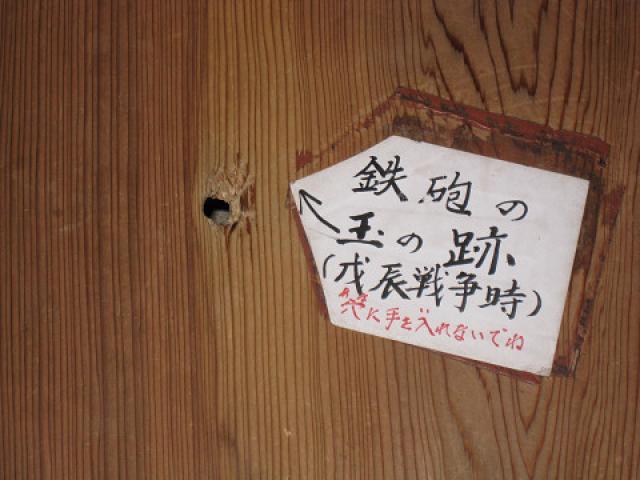 鉄砲の
玉の跡
(戊辰戦争時)
あな
穴に手を入れないでね